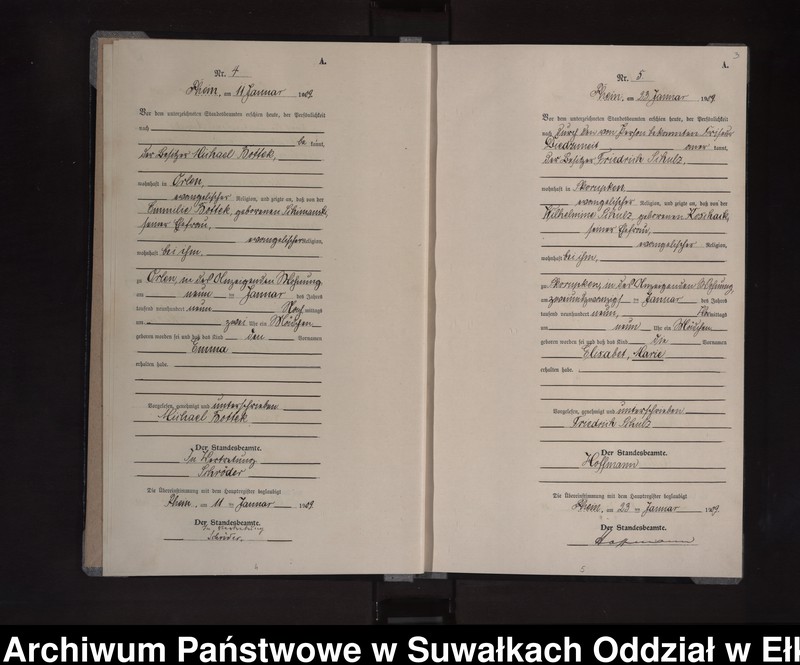 A.
Nr. 4
Rhein, am 11 Januar 1909.
Vor dem unterzeichneten Standesbeamten erschien heute, der Persönlichkeit
nach
be kannt,
der Besitzer Michael Bottek,
wohnhaft in Orlen,
evangelischer Religion, und zeigte an, daß von der
Emmilie Bottek, geborenen Schimanski,
seiner Ehefrau,
evangelischer Religion,
wohnhaft bei ihm,
zu Orlen, in des Anzeigenden Wohnung
am neun ten Januar des Jahres
tausend neunhundert neun Nach mittags
um zwei Uhr ein Mädchen
geboren worden sei und daß das Kind den Vornamen
Emma
erhalten habe.
Vorgelesen, genehmigt und unterschrieben
Michael Bottek
Der Standesbeamte.
In Vertretung
Schröder
Die Übereinstimmung mit dem Hauptregister beglaubigt
Rhein, am 11 ten Januar 1909.
Der Standesbeamte.
In Vertretung
Schröder.
3
A.
Nr. 5
Rhein, am 23 Januar 1909.
Vor dem unterzeichneten Standesbeamten erschien heute, der Persönlichkeit
nach durch den von Person bekannten
aner kannt,
der Besitzer Friedrich Schulz,
wohnhaft in Skorupken
evangelischer Religion, und zeigte an, daß von der
Wilhelmine Schulz geborenen Koschack,
seiner Ehefrau,
evangelischer Religion,
wohnhaft bei ihm,
zu Skorupken, in des Anzeigenden Wohnung,
am zweiundzwanzigsten Januar des Jahres
tausend neunhundert neun, Vormittags
um neun Uhr ein Mädchen
geboren worden sei und daß das Kind die Vornamen
Elisabet, Marie
erhalten habe.
Vorgelesen, genehmigt und unterschrieben
Friedrich Schulz
Der Standesbeamte.
Hoffmann
Die Übereinstimmung mit dem Hauptregister beglaubigt
Rhein, am 23 ten Januar 1909.
Der Standesbeamte.
Hoffmann
5
Archiwum Państwowe w Suwałkach Oddział w Eł